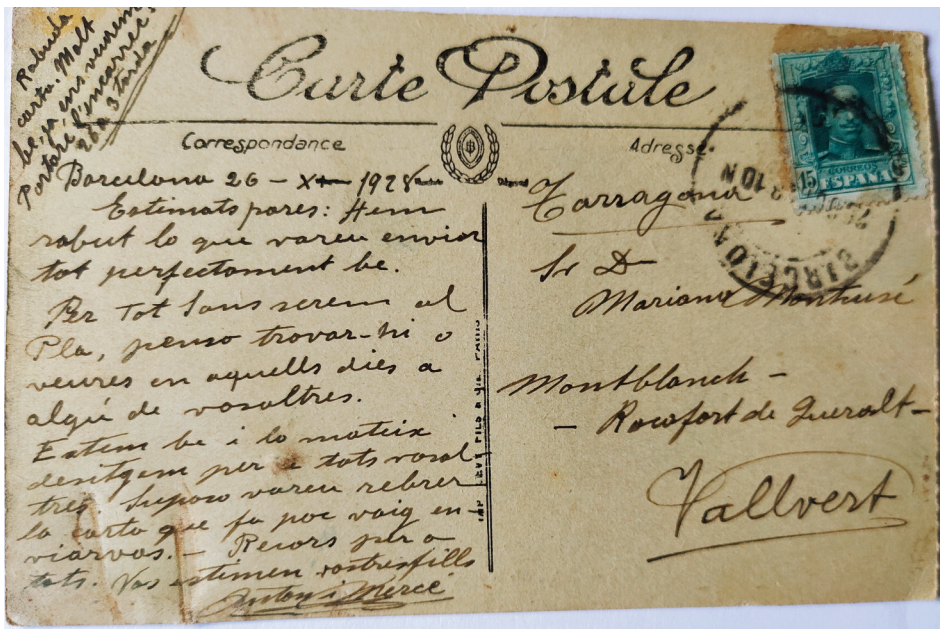 Rabuda
carta. Molt
be, ja ens veurem
Portaré l'encarrec.
26 a 3 tarda
Carte Postale
Correspondance
Adresse
Barcelona 26 - X - 1928
Estimats pares: Hem
rabut lo que vareu enviar
tot perfectament be.
Per Tot Sans serem al
Pla, penso trovar-hi o
veures en aquells dies a
algú de vosaltres.
Estem be i lo mateix
desitgem per a tots vosal-
tres. Suposo vareu rebrer
la carta que fa poc vaig en-
viarvos. - Recors per a
tots. Vos estimen vostres fills
Antoni i Mercè
LEVY FILS & Cie PARIS
CORREOS
15
ESPAÑA
Tarragona
Sr Dn
Mariano Montrusé
Montblanch -
- Rocafort de Queralt -
Vallvert